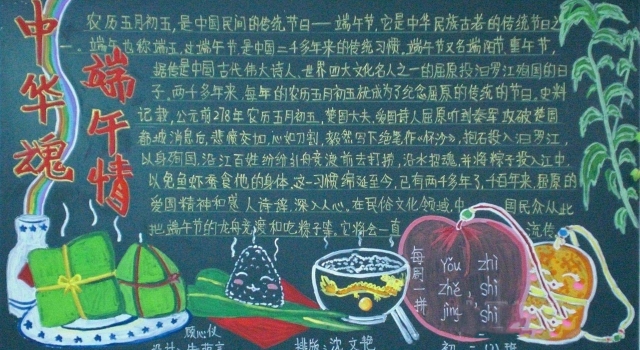 中华魂
端午情
农历五月初五，是中国民间的传统节日——端午节，它是中华民族古老的传统节日之
一。端午也称端五，过端午节是中国二千多年来的传统习惯，端午节又名端阳节、重午节，
据传是中国古代伟大诗人、世界四大文化名人之一的屈原投汨罗江殉国的日
子。两千多年来，每年的农历五月初五就成为了纪念屈原的传统的节日。史料
记载，公元前278年农历五月初五，楚国大夫、爱国诗人屈原听到秦军攻破楚国
都城消息后，悲愤交加，心如刀割，毅然写下绝笔作《怀沙》，抱石投入汨罗江，
以身殉国。沿江百姓纷纷引舟竞渡前去打捞，沿水招魂，并将粽子投入江中，
以免鱼虾蚕食他的身体。这一习俗绵延至今，已有两千多年了，千百年来，屈原的
爱国精神和感人诗辞，深入人心。在民俗文化领域，中 国民众从此
把端午节的龙舟竞渡和吃粽子等，它将会一直 流传
每周一拼
yǒu zhì
zhě shì
jìng
顾心仪
设计：
排版：沈文艳
初二(2)班